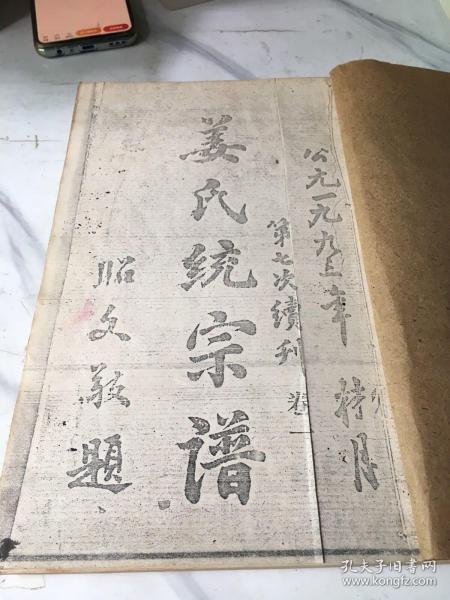 公元一九九三年 特月
第七次續刊 卷一
姜氏统宗谱
昭文敬題
孔夫子旧书网
www.kongfz.com